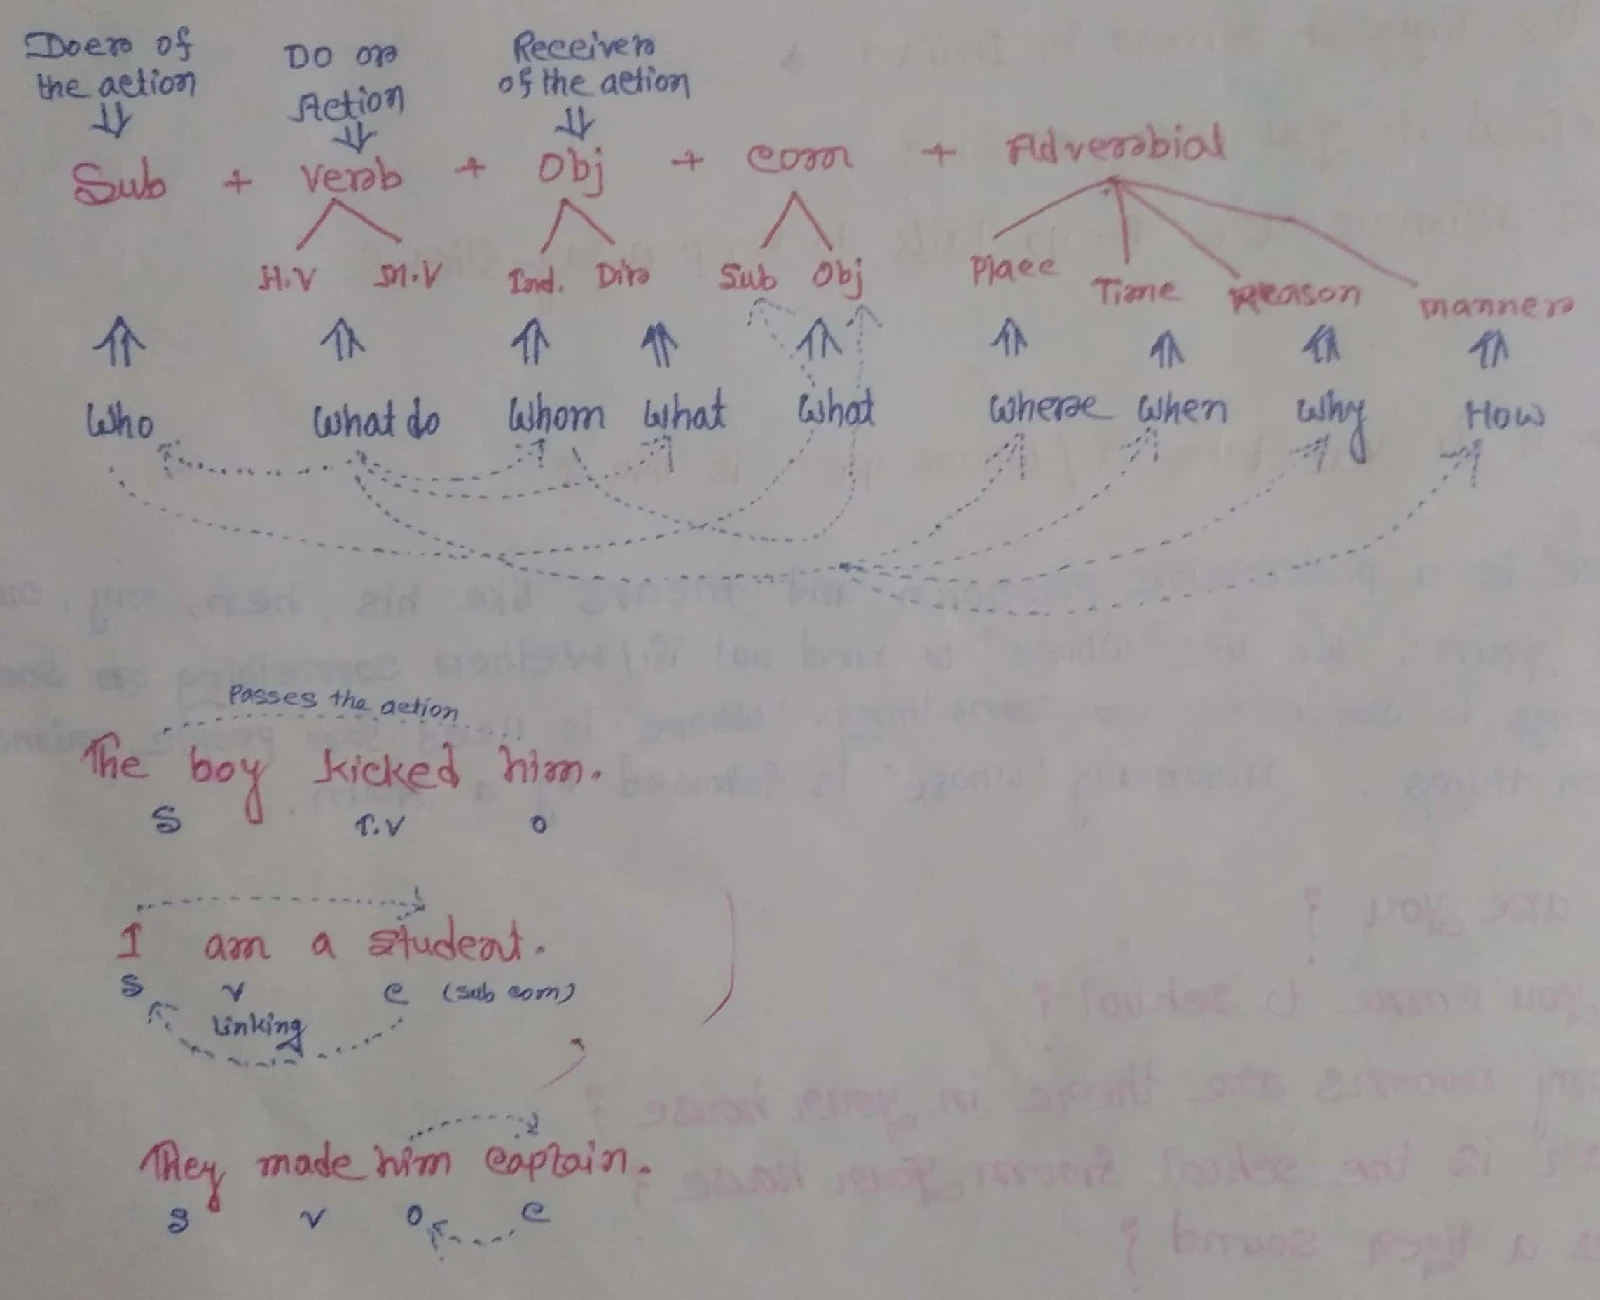 Doer of the action
Do or Action
Receiver of the action
Sub + Verb + Obj + Com + Adverbial
H.V M.V Ind. Dir Sub Obj Place Time Reason manner
Who What do Whom What What Where When Why How
Passes the action
The boy kicked him.
S T.V O
I am a student.
S V C (Sub com)
Linking
They made him captain.
S V O C